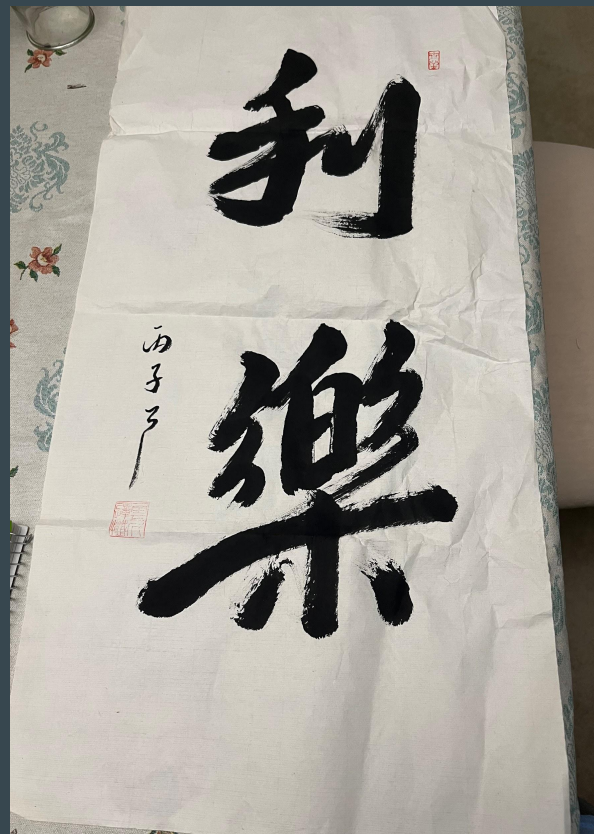 利樂
丙子